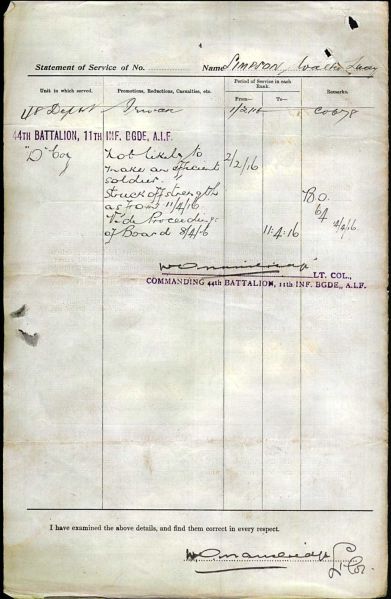 4
Statement of Service of No. Name SIMPSON, Walter
Unit in which served.
Promotions, Reductions, Casualties, etc.
Period of Service in each Rank.
From—
To—
Remarks.
48 Depot
1/2/16
44TH BATTALION, 11TH INF. BGDE, A.I.F.
"D" Coy
not likely to
make an efficient
soldier.
2/2/16
Struck off strength
as from 11/4/16
Vide Proceedings
of Board 8/4/16
11.4.16
B.O.
64
LT. COL.,
COMMANDING 44TH BATTALION, 11TH INF. BGDE., A.I.F.
I have examined the above details, and find them correct in every respect.